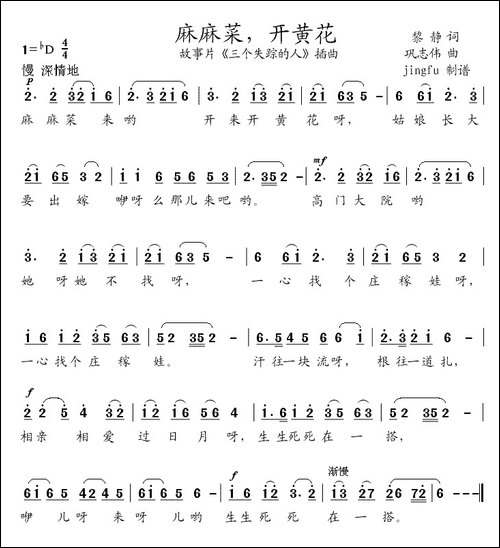 麻麻菜，开黄花
1=♭D 4/4
故事片《三个失踪的人》插曲
黎静 词
巩志伟 曲
jingfu 制谱
慢 深情地
p
麻麻菜来哟 开来开黄花呀，姑娘长大
mf
要出嫁 咿呀么那儿来吧哟。 高门大院哟
她呀她不找呀， 一心找个庄稼娃呀，
一心找个庄稼娃。 汗往一块流呀，根往一道扎，
f
相亲相爱过日月呀，生生死死在一搭，
f 渐慢
咿儿呀来呀儿哟生生死死在一搭。